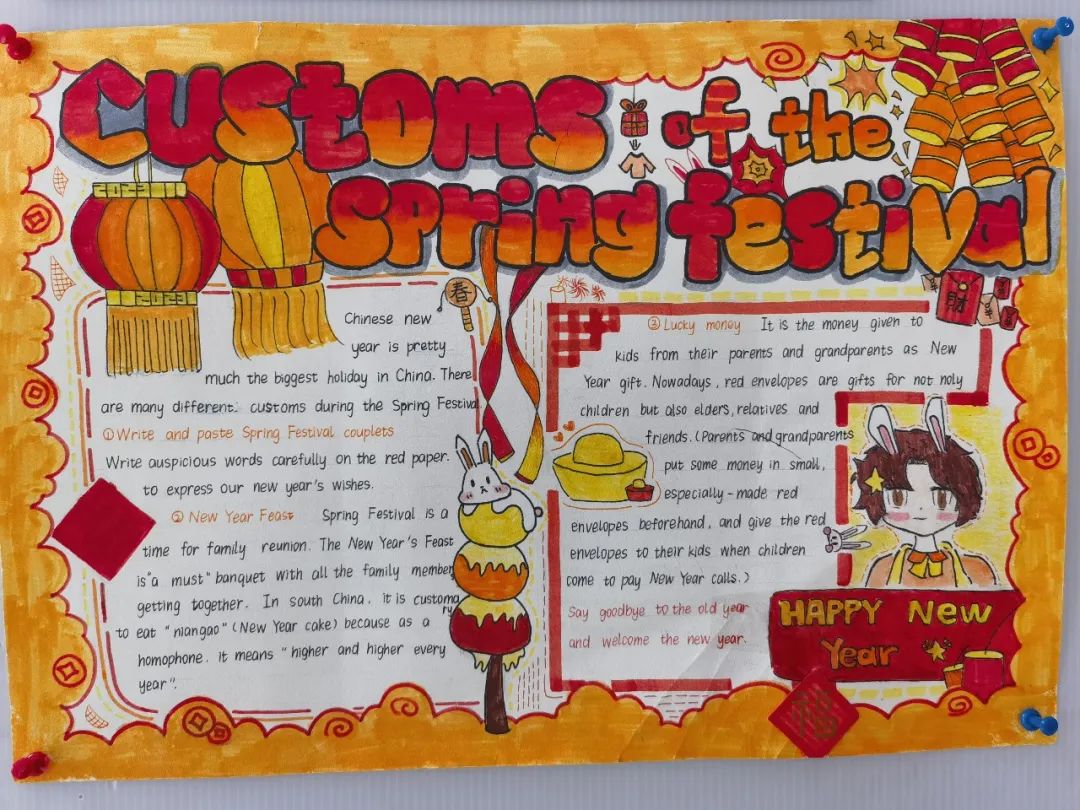 Customs of the
Spring festival
2023
2023
春
財
Chinese new
year is pretty
much the biggest holiday in China. There
are many different. customs during the Spring Festival
①Write and paste Spring Festival couplets
Write auspicious words carefully on the red paper.
to express our new year's wishes.
② New Year Feast Spring Festival is a
time for family reunion. The New Year's Feast
is "a must" banquet with all the family member
getting together. In south China, it is customa
ry
to eat "niangao" (New Year cake) because as a
homophone. it means "higher and higher every
year".
③ Lucky money It is the money given to
kids from their parents and grandparents as New
Year gift. Nowadays, red envelopes are gifts for not noly
children but also elders, relatives and
friends. (Parents and grandparents
put some money in small,
especially-made red
envelopes beforehand, and give the red
envelopes to their kids when children
come to pay New Year calls.)
Say goodbye to the old year
and welcome the new year.
HAPPY New
Year
福